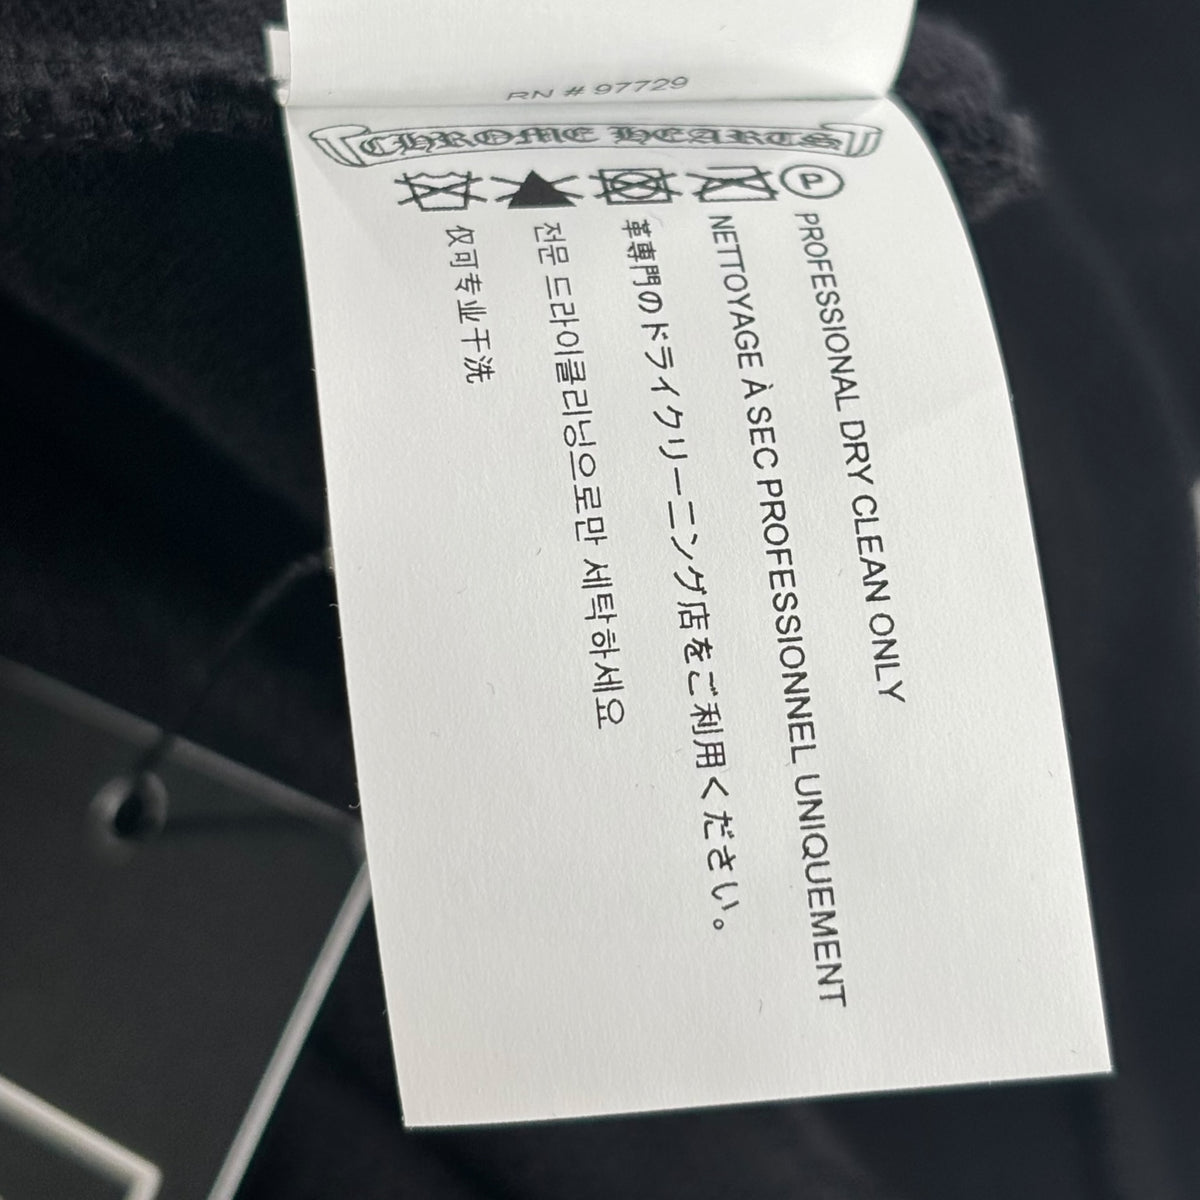 RN # 97729
CHROME HEARTS
P
PROFESSIONAL DRY CLEAN ONLY
NETTOYAGE À SEC PROFESSIONNEL UNIQUEMENT
革専門のドライクリーニング店をご利用ください。
전문 드라이클리닝으로만 세탁하세요
仅可专业干洗